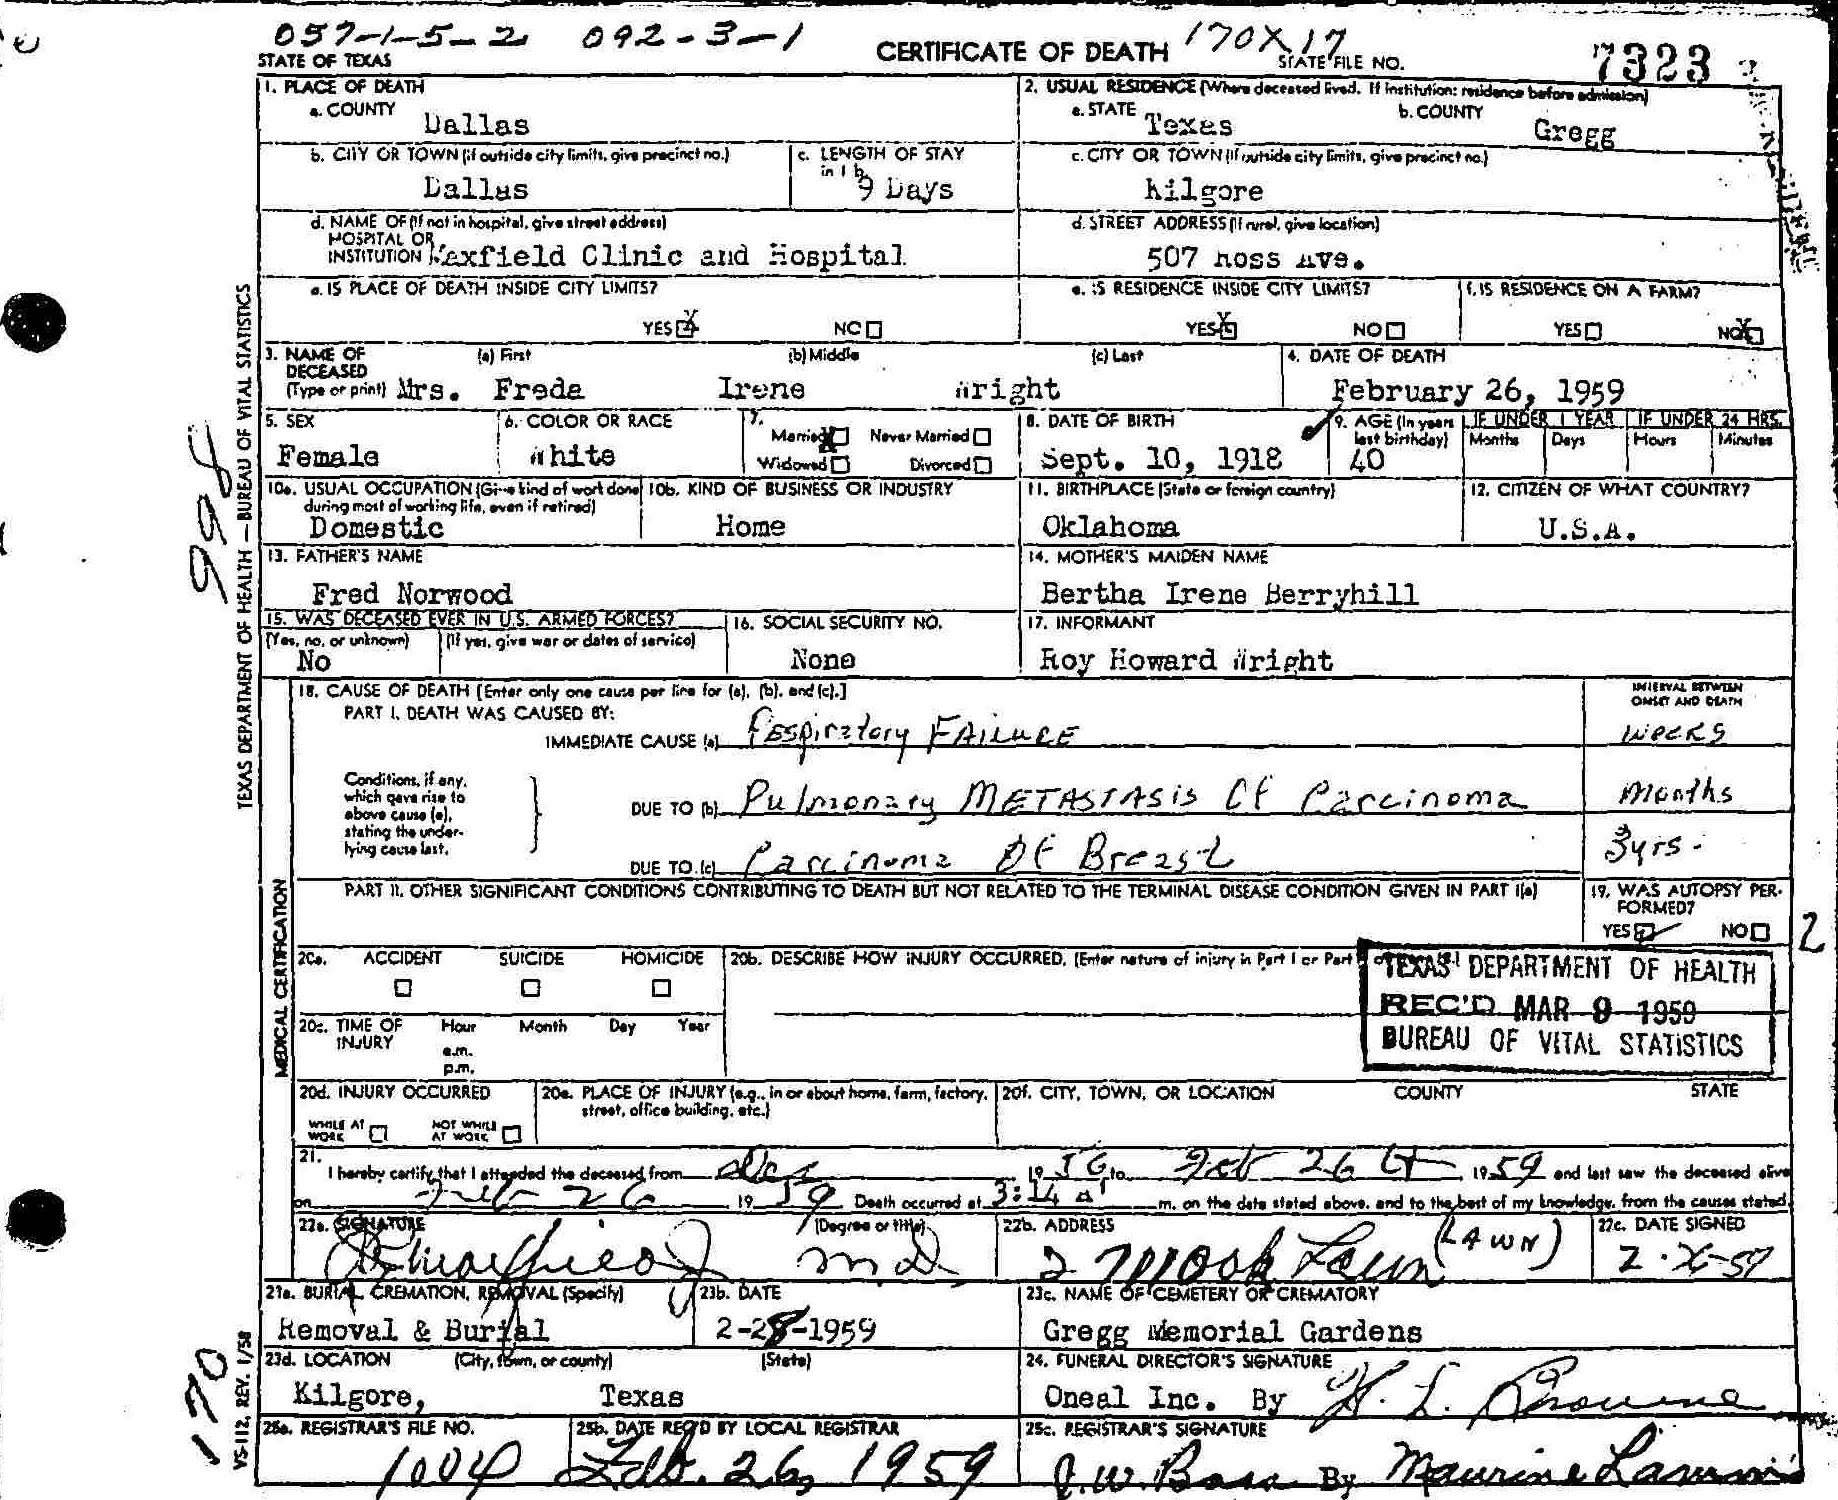 057-1-5-2 092-3-1
CERTIFICATE OF DEATH 170X17
STATE OF TEXAS STATE FILE NO. 7323
1. PLACE OF DEATH
a. COUNTY
Dallas
2. USUAL RESIDENCE (Where deceased lived. If institution: residence before admission)
a. STATE Texas b. COUNTY Gregg
b. CITY OR TOWN (if outside city limits, give precinct no.)
Dallas
c. LENGTH OF STAY in 1 b.
9 Days
c. CITY OR TOWN (If outside city limits, give precinct no.)
Kilgore
d. NAME OF (If not in hospital, give street address)
HOSPITAL OR
INSTITUTION Maxfield Clinic and Hospital
d. STREET ADDRESS (If rural, give location)
507 Ross Ave.
e. IS PLACE OF DEATH INSIDE CITY LIMITS?
YES X NO
e. IS RESIDENCE INSIDE CITY LIMITS?
YES X NO
f. IS RESIDENCE ON A FARM?
YES NO X
3. NAME OF DECEASED (Type or print)
(a) First (b) Middle (c) Last
Mrs. Freda Irene Wright
4. DATE OF DEATH
February 26, 1959
5. SEX
Female
6. COLOR OR RACE
White
7.
Married X Never Married
Widowed Divorced
8. DATE OF BIRTH
Sept. 10, 1918
9. AGE (In years last birthday)
40
IF UNDER 1 YEAR IF UNDER 24 HRS.
Months Days Hours Minutes
10a. USUAL OCCUPATION (Give kind of work done during most of working life, even if retired)
Domestic
10b. KIND OF BUSINESS OR INDUSTRY
Home
11. BIRTHPLACE (State or foreign country)
Oklahoma
12. CITIZEN OF WHAT COUNTRY?
U.S.A.
13. FATHER'S NAME
Fred Norwood
14. MOTHER'S MAIDEN NAME
Bertha Irene Berryhill
15. WAS DECEASED EVER IN U.S. ARMED FORCES?
(Yes, no, or unknown) (If yes, give war or dates of service)
No
16. SOCIAL SECURITY NO.
None
17. INFORMANT
Roy Howard Wright
18. CAUSE OF DEATH [Enter only one cause per line for (a), (b), and (c).]
PART I. DEATH WAS CAUSED BY:
INTERVAL BETWEEN ONSET AND DEATH
IMMEDIATE CAUSE (a) Respiratory FAILURE weeks
Conditions, if any, which gave rise to above cause (a), stating the underlying cause last.
DUE TO (b) Pulmonary METASTASIS Of Carcinoma Months
DUE TO (c) Carcinoma Of Breast 3yrs.
PART II. OTHER SIGNIFICANT CONDITIONS CONTRIBUTING TO DEATH BUT NOT RELATED TO THE TERMINAL DISEASE CONDITION GIVEN IN PART I(a)
19. WAS AUTOPSY PERFORMED?
YES NO
2
20a. ACCIDENT SUICIDE HOMICIDE
20b. DESCRIBE HOW INJURY OCCURRED. (Enter nature of injury in Part I or Part
TEXAS DEPARTMENT OF HEALTH
REC'D MAR 9 1959
BUREAU OF VITAL STATISTICS
20c. TIME OF INJURY
Hour Month Day Year
a.m.
p.m.
20d. INJURY OCCURRED
WHILE AT WORK NOT WHILE AT WORK
20e. PLACE OF INJURY (e.g., in or about home, farm, factory, street, office building, etc.)
20f. CITY, TOWN, OR LOCATION COUNTY STATE
21.
I hereby certify that I attended the deceased from Dec 19 56 to Feb 26 1959 and last saw the deceased alive
on Feb 26 19 59 Death occurred at 3:14 a m. on the date stated above, and to the best of my knowledge, from the causes stated.
22a. SIGNATURE (Degree or title)
M.D.
22b. ADDRESS
Lawn (LAWN)
22c. DATE SIGNED
23a. BURIAL, CREMATION, REMOVAL (Specify)
Removal & Burial
23b. DATE
2-28-1959
23c. NAME OF CEMETERY OR CREMATORY
Gregg Memorial Gardens
23d. LOCATION (City, town, or county) (State)
Kilgore, Texas
24. FUNERAL DIRECTOR'S SIGNATURE
Oneal Inc. By H. L. Browne
25a. REGISTRAR'S FILE NO.
1004
25b. DATE REC'D BY LOCAL REGISTRAR
Feb. 26, 1959
25c. REGISTRAR'S SIGNATURE
J.W. Bass By Maurine
TEXAS DEPARTMENT OF HEALTH — BUREAU OF VITAL STATISTICS
998
MEDICAL CERTIFICATION
170
VS-112, REV. 1/58